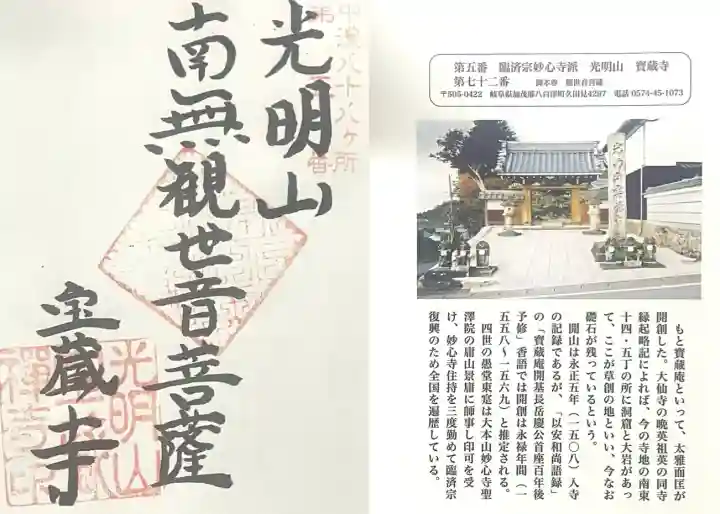 中濃八十八ヶ所
第五番
光明山
南無観世音菩薩
宝蔵寺
光明山
禅寺印
第五番 臨済宗妙心寺派 光明山 寶蔵寺
第七十二番 御本尊 観世音菩薩
〒505-0422 岐阜県加茂郡八百津町久田見4297 電話 0574-45-1073
もと寶蔵庵といって、太雅面匡が
開創した。大仙寺の晩英祖英の同寺
縁起略記によれば、今の寺地の南東
十四・五丁の所に洞窟と大岩があっ
て、ここが草創の地といい、今なお
礎石が残っているという。
開山は永正五年(一五〇八)入寺
の記録であるが、「以安和尚語録」
の「寶蔵庵開基長岳慶公首座百年後
予修」香語では開創は永禄年間(一
五五八～一五六九)と推定される。
四世の愚堂東寔は大本山妙心寺聖
澤院の庸山景庸に師事し印可を受
け、妙心寺住持を三度勤めて臨済宗
復興のため全国を遍歴している。